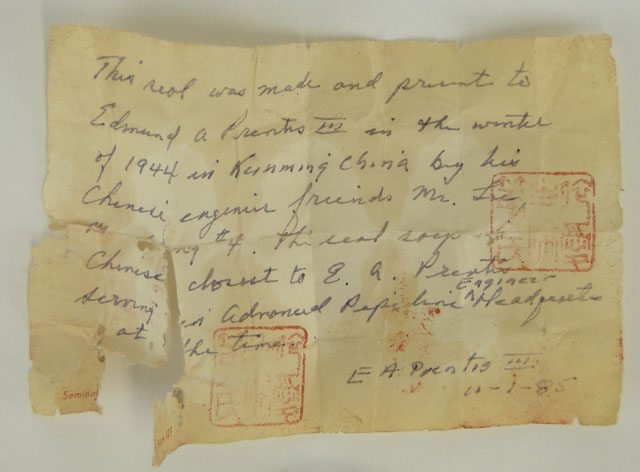 This seal was made and present to
Edmund A Prentis III in the winter
of 1944 in Kunming China by his
Chinese engineer friends Mr.
#4. The seal says
Chinese closest to E. A. Prentis
serving Advanced Pipe line Engineer Headquarters
at the time.
E A Prentis III
85
Seminol